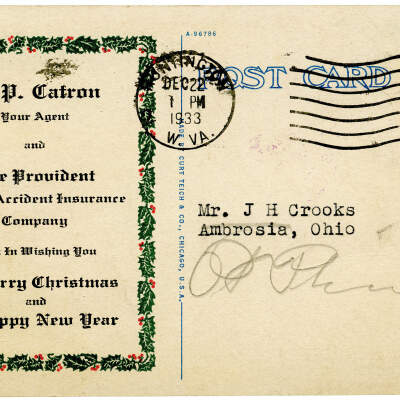 A-96786
P. Catron
Your Agent
and
e Provident
Accident Insurance
Company
t in Wishing You
rry Christmas
and
ppy New Year
HUNTINGTON
DEC 22
1 PM
1933
W. VA.
POST CARD
MADE BY CURT TEICH & CO., CHICAGO, U.S.A.
Mr. J H Crooks
Ambrosia, Ohio